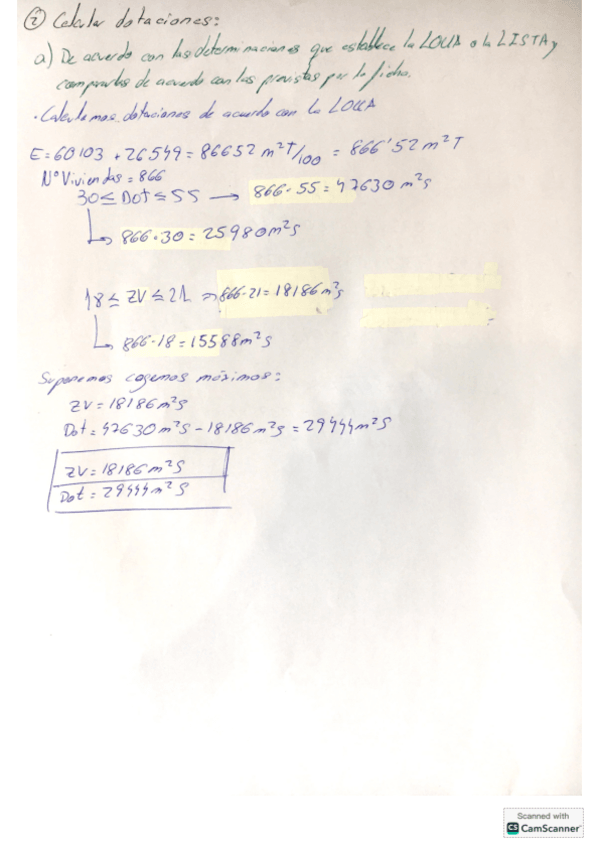 ② Calcular dotaciones:
a) De acuerdo con las determinaciones que establece la LOUA o la LISTA, y
comprarlas de acuerdo con las previstas por la ficha.
· Calculamos dotaciones de acuerdo con la LOUA
E = 60103 + 26549 = 86652 m²T/100 = 866'52 m²T
Nº Viviendas = 866
30 ≤ Dot ≤ 55 → 866·55 = 47630 m²s
↳ 866·30 = 25980 m²s
18 ≤ ZV ≤ 21 → 866·21 = 18186 m²s
↳ 866·18 = 15588 m²s
Suponemos cogemos máximos:
ZV = 18186 m²s
Dot = 47630 m²s - 18186 m²s = 29444 m²s
ZV = 18186 m²s
Dot = 29444 m²s
Scanned with
CS CamScanner